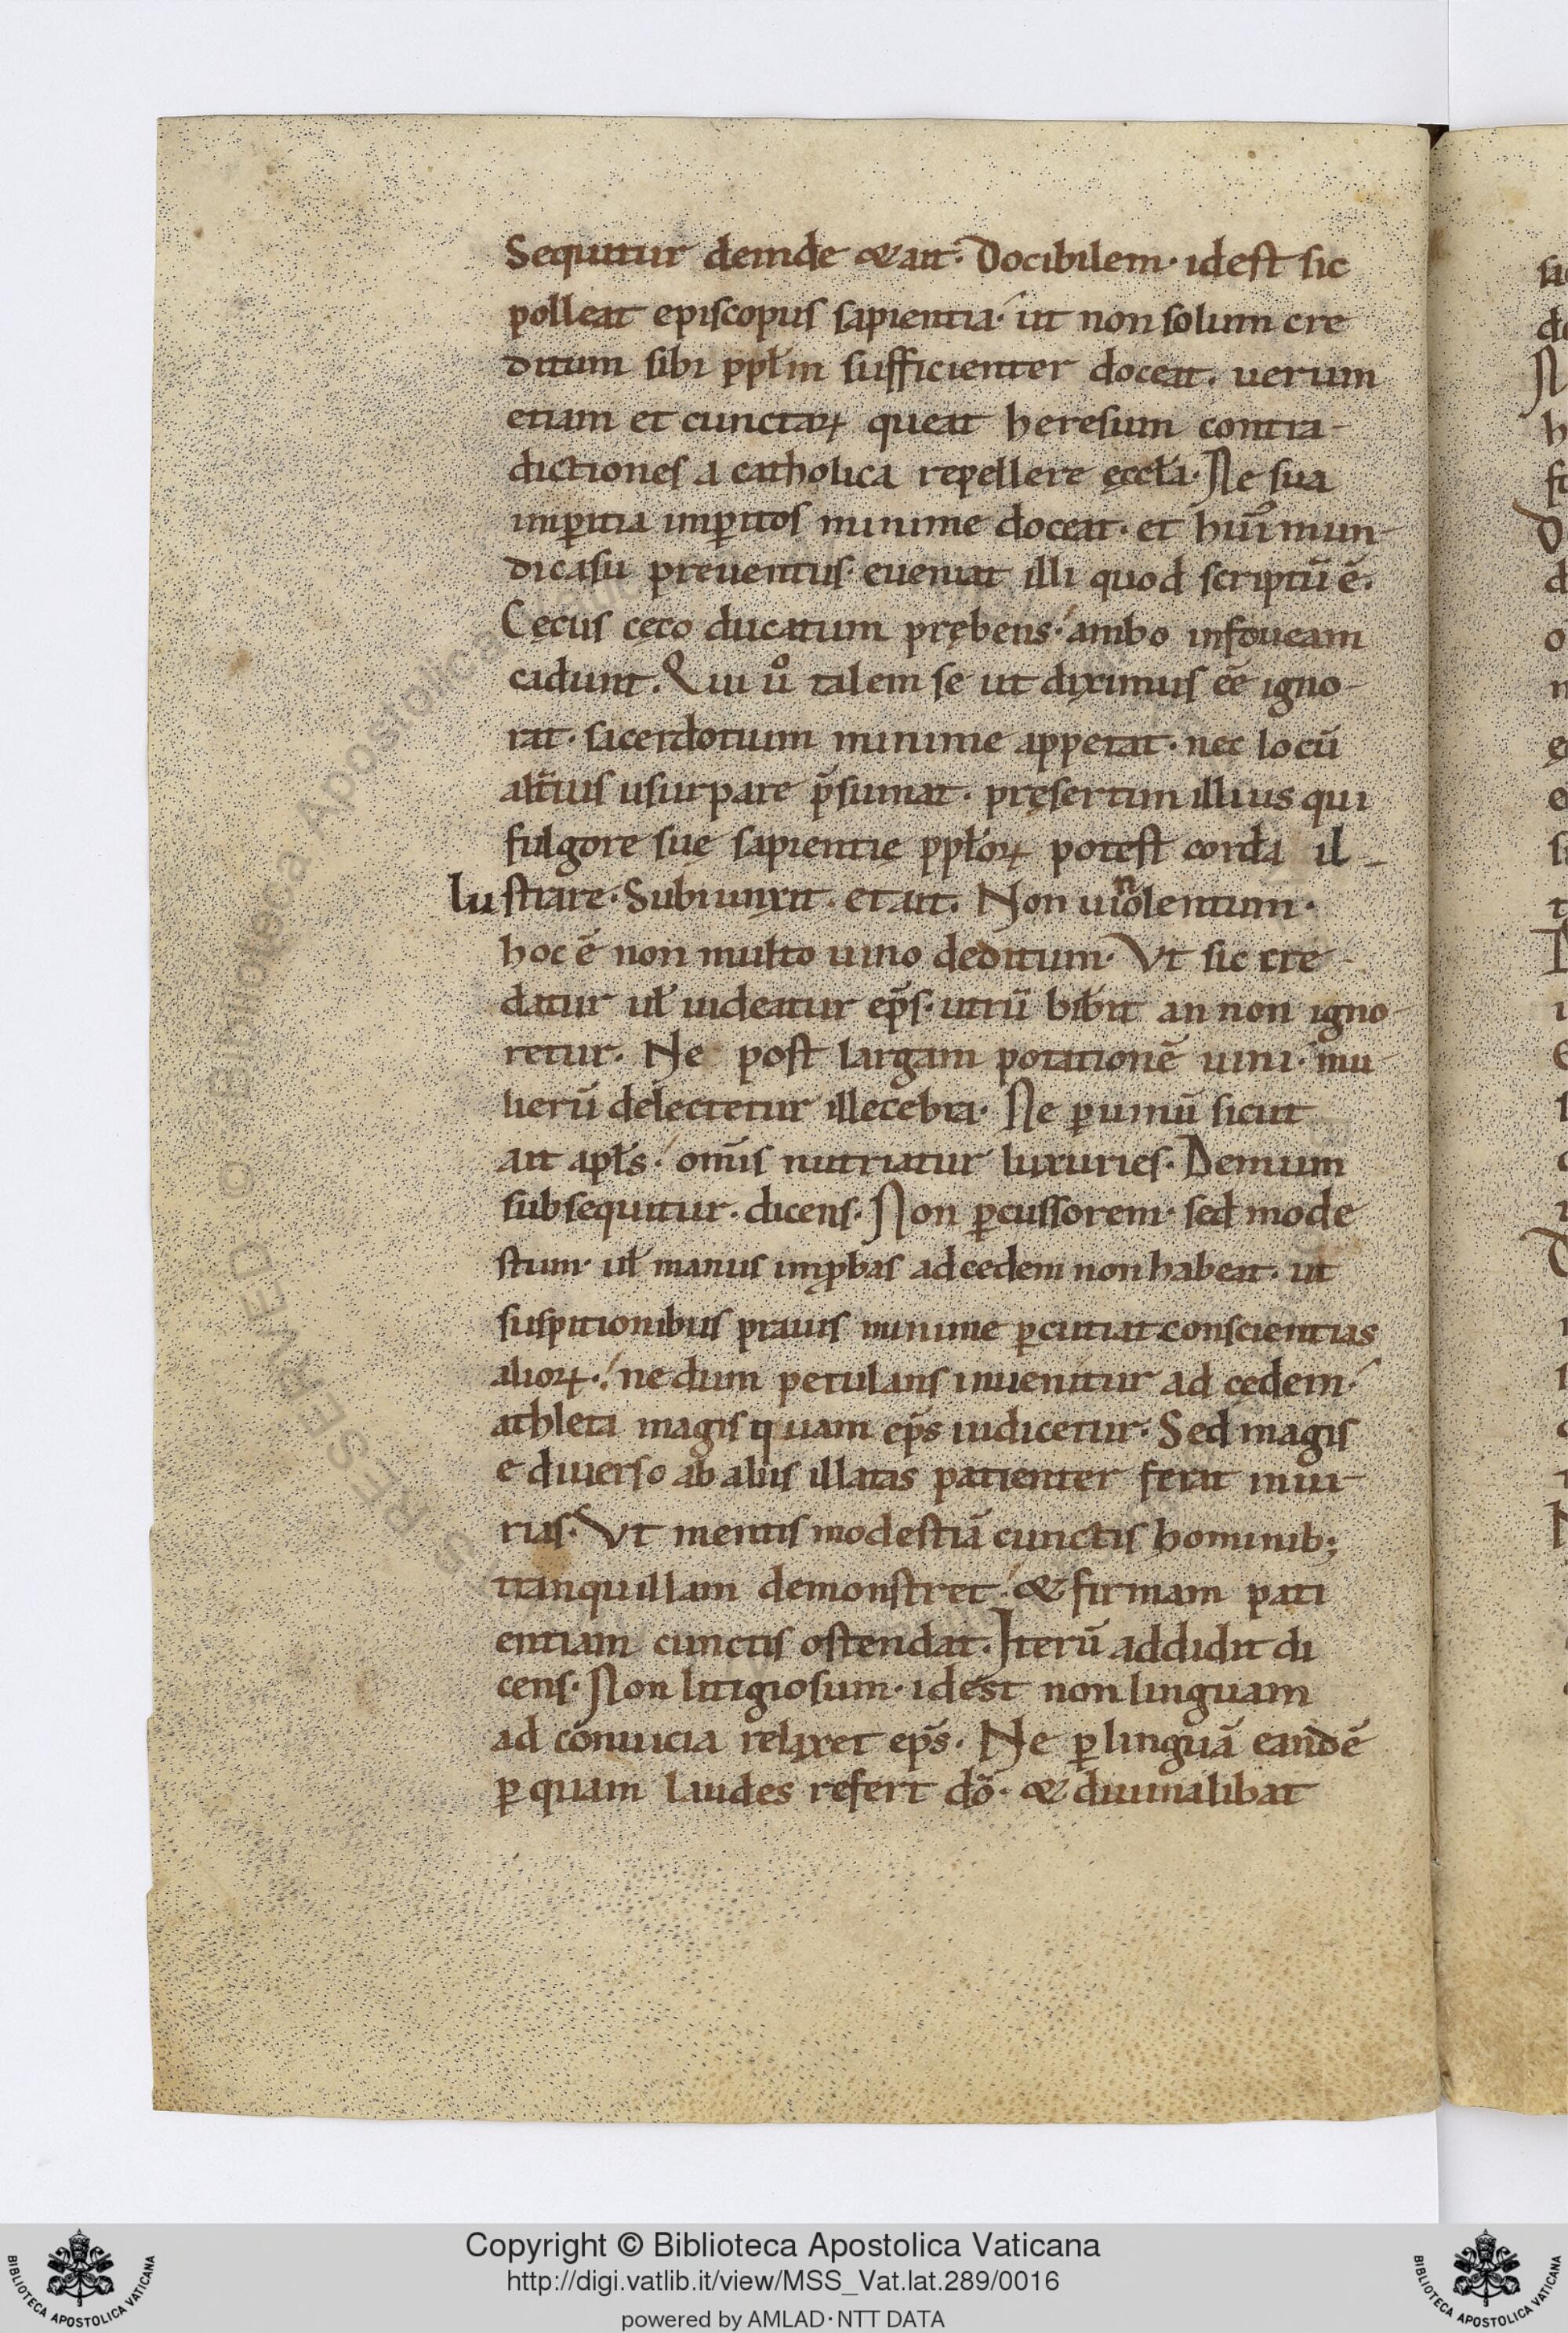 Sequitur deinde & ait· Docibilem· id est sic
polleat episcopus sapientia· ut non solum cre
ditum sibi pplm̄ sufficienter doceat. uerum
etiam et cunctaꝝ queat heresum contra-
dictiones a catholica repellere ęccła· Ne sua
imꝑitia imꝑitos minime doceat· et hui᷒ mun-
di casu preuentus· eueniat illi quod scriptū ē.
Cęcus cęco ducatum prębens· ambo in foueam
cadunt. Qui ůo talem se ut diximus eē igno-
rat· sacerdotium minime appetat· nec locū
alt̄ius usurpare p̄sumat· pręsertim illius qui
fulgore sue sapientie pploꝝ potest corda il-
lustrare· Subiunxit· et ait. Non uinolentum·
hoc ē non multo uino deditum· Ut sic cre-
datur uł uideatur ep̄s· utrū bib̄it an non igno-
retur· Ne post largam potationē uini· mu-
lierū delectetur illecebra· Ne ꝑ uinū sicut
ait apl̄s· om̄is nutriatur luxuries· Demum
subsequitur· dicens· Non ꝑcussorem· sed mode
stum· uł manus imꝓbas ad cedem non habeat. ut
suspitionibus prauis minime ꝑcutiat conscientias
alioꝝ· ne dum petulans inuenitur ad cędem·
athleta magis quam ep̄s iudicetur· Sed magis
e diuerso ab aliis illatas patienter ferat iniu-
rias· Ut mentis modestiā cunctis hominib;
tranquillam demonstret· & firmam pati
entiam cunctis ostendat· Iterū addidit di
cens· Non litigiosum· id est non linguam
ad conuicia relaxet ep̄s· Ne ꝑ linguā eandē
ꝑ quam laudes refert dō· & diuina libat
Copyright © Biblioteca Apostolica Vaticana
http://digi.vatlib.it/view/MSS_Vat.lat.289/0016
powered by AMLAD·NTT DATA
BIBLIOTECA APOSTOLICA VATICANA
BIBLIOTECA APOSTOLICA VATICANA